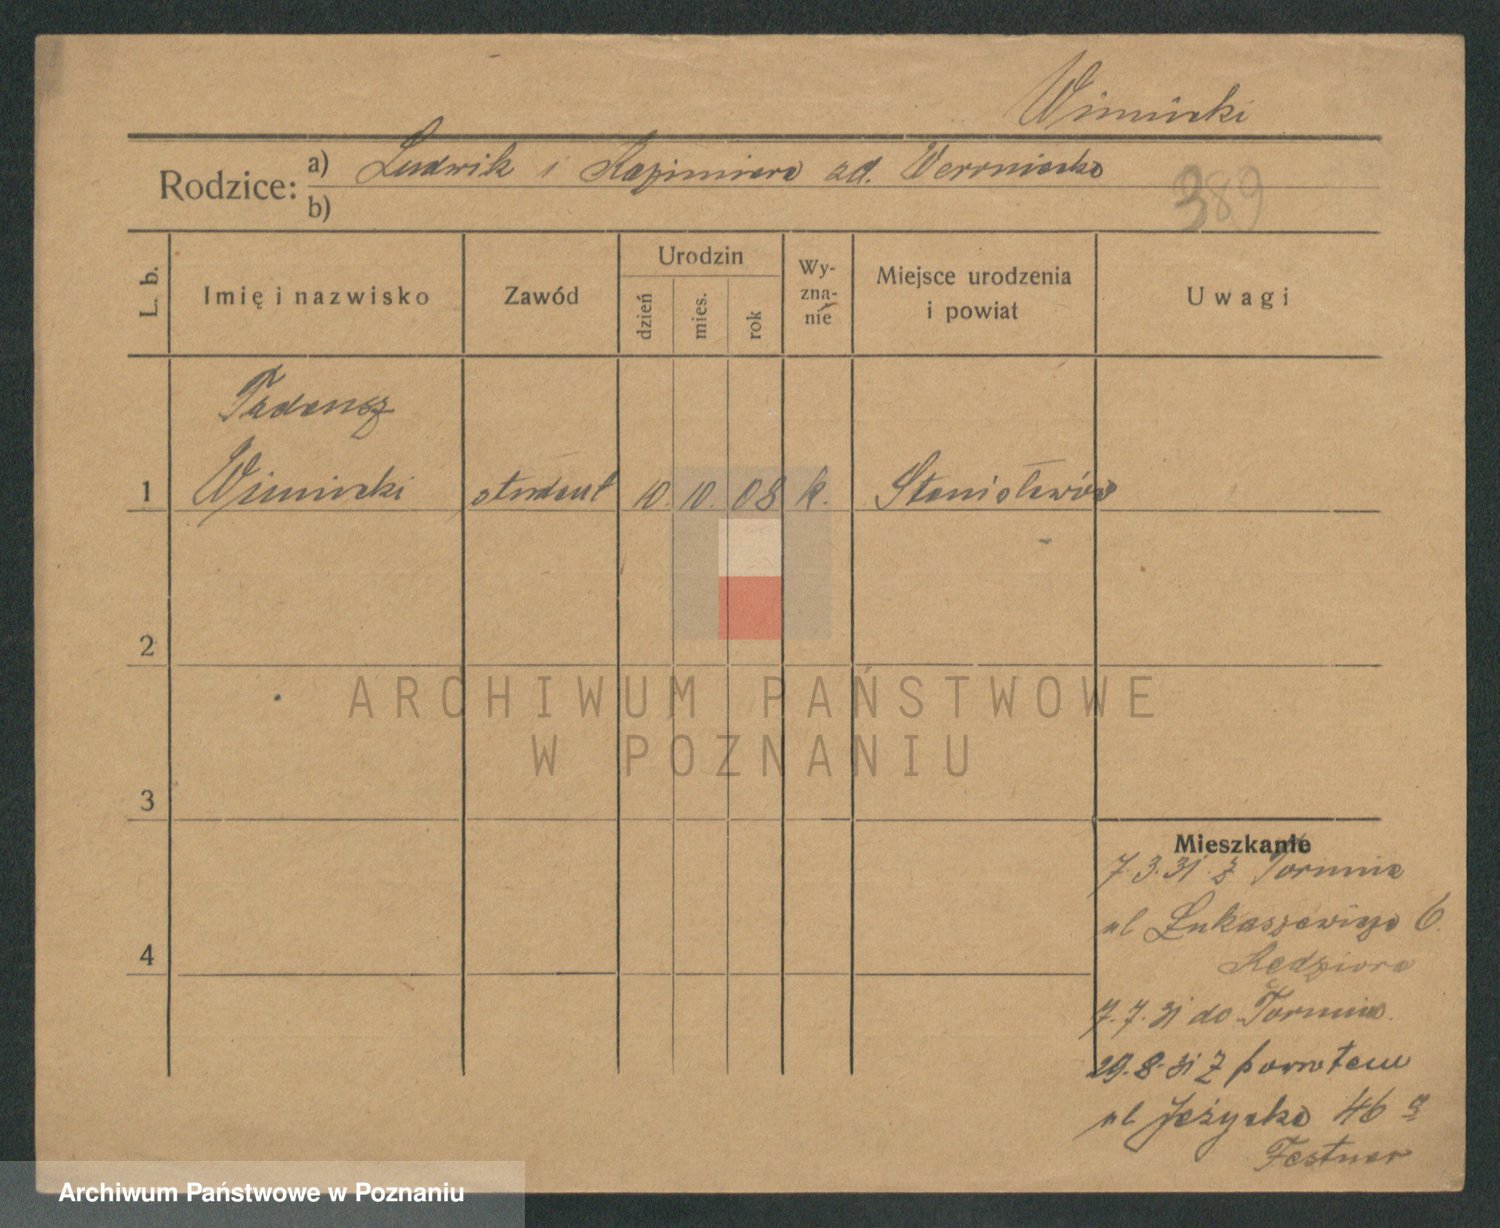 Winnicki
Rodzice: a) Ludwik i Kazimiera zd.
b)
389
L. b.
Imię i nazwisko
Zawód
Urodzin
dzień
mies.
rok
Wy-
zna-
nie
Miejsce urodzenia
i powiat
Uwagi
Tadeusz
1 Winnicki student 10. 10. 08 k. Stanisławów
2
3
4
Mieszkanie
7.3.31 z Torunia
ul Łukaszewicza 6
Kędziora
7.7.31 do Torunia
29.8.31 z powrotem
ul Jeżycka 46
Festner
ARCHIWUM PAŃSTWOWE
W POZNANIU
Archiwum Państwowe w Poznaniu